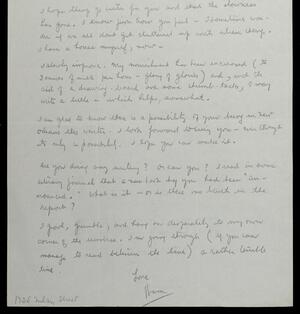 I hope things go better for you and that the slowness
has gone. I know just how you feel - I sometimes won-
der if we all don't get shattered
I have a house myself, now -
I slowly improve. My nourishment has been increased (to
of milk per hour - glory of glories) and, with the
aid of a drawing-board and some thumb-tacks, I may
write a little - which helps, somewhat.
I am glad to know there is a possibility of your being in new
orleans this winter. I look forward to seeing you - even though
it only is a possibility. I hope you can make it.
Are you doing any writing? Or can you? I read in some
literary journal that a new book by you had been "an-
nounced." What is it - or is there no truth in the
report?
I brood, grumble, and hang on desperately to my own
corner of the universe. I'm going through (if you can
manage to read between the lines) a rather terrible
time.
Love
1926 Street